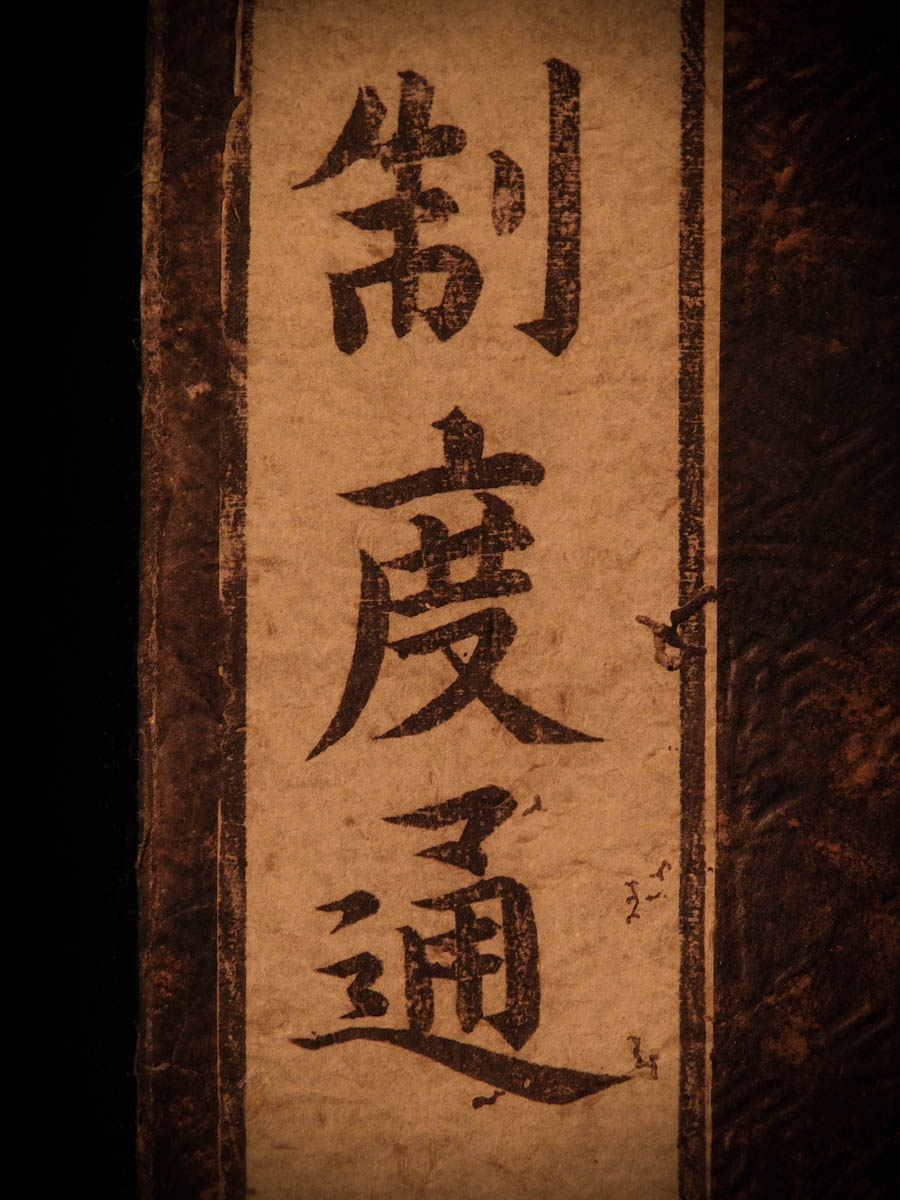 制度通